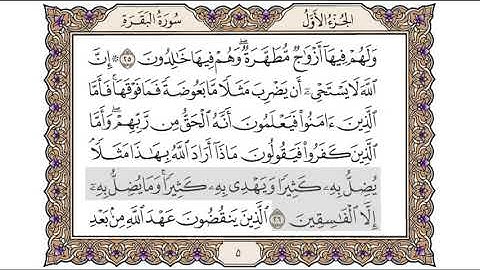 الجزء الأول
سورة البقرة
وَلَهُمْ فِيهَآ أَزْوَٰجٌ مُّطَهَّرَةٌ ۖ وَهُمْ فِيهَا خَٰلِدُونَ ٢٥ ۞ إِنَّ
ٱللَّهَ لَا يَسْتَحْىِۦٓ أَن يَضْرِبَ مَثَلًا مَّا بَعُوضَةً فَمَا فَوْقَهَا ۚ فَأَمَّا
ٱلَّذِينَ ءَامَنُوا۟ فَيَعْلَمُونَ أَنَّهُ ٱلْحَقُّ مِن رَّبِّهِمْ ۖ وَأَمَّا
ٱلَّذِينَ كَفَرُوا۟ فَيَقُولُونَ مَاذَآ أَرَادَ ٱللَّهُ بِهَٰذَا مَثَلًا ۘ
يُضِلُّ بِهِۦ كَثِيرًا وَيَهْدِى بِهِۦ كَثِيرًا ۚ وَمَا يُضِلُّ بِهِۦٓ
إِلَّا ٱلْفَٰسِقِينَ ٢٦ ٱلَّذِينَ يَنقُضُونَ عَهْدَ ٱللَّهِ مِنۢ بَعْدِ
٥